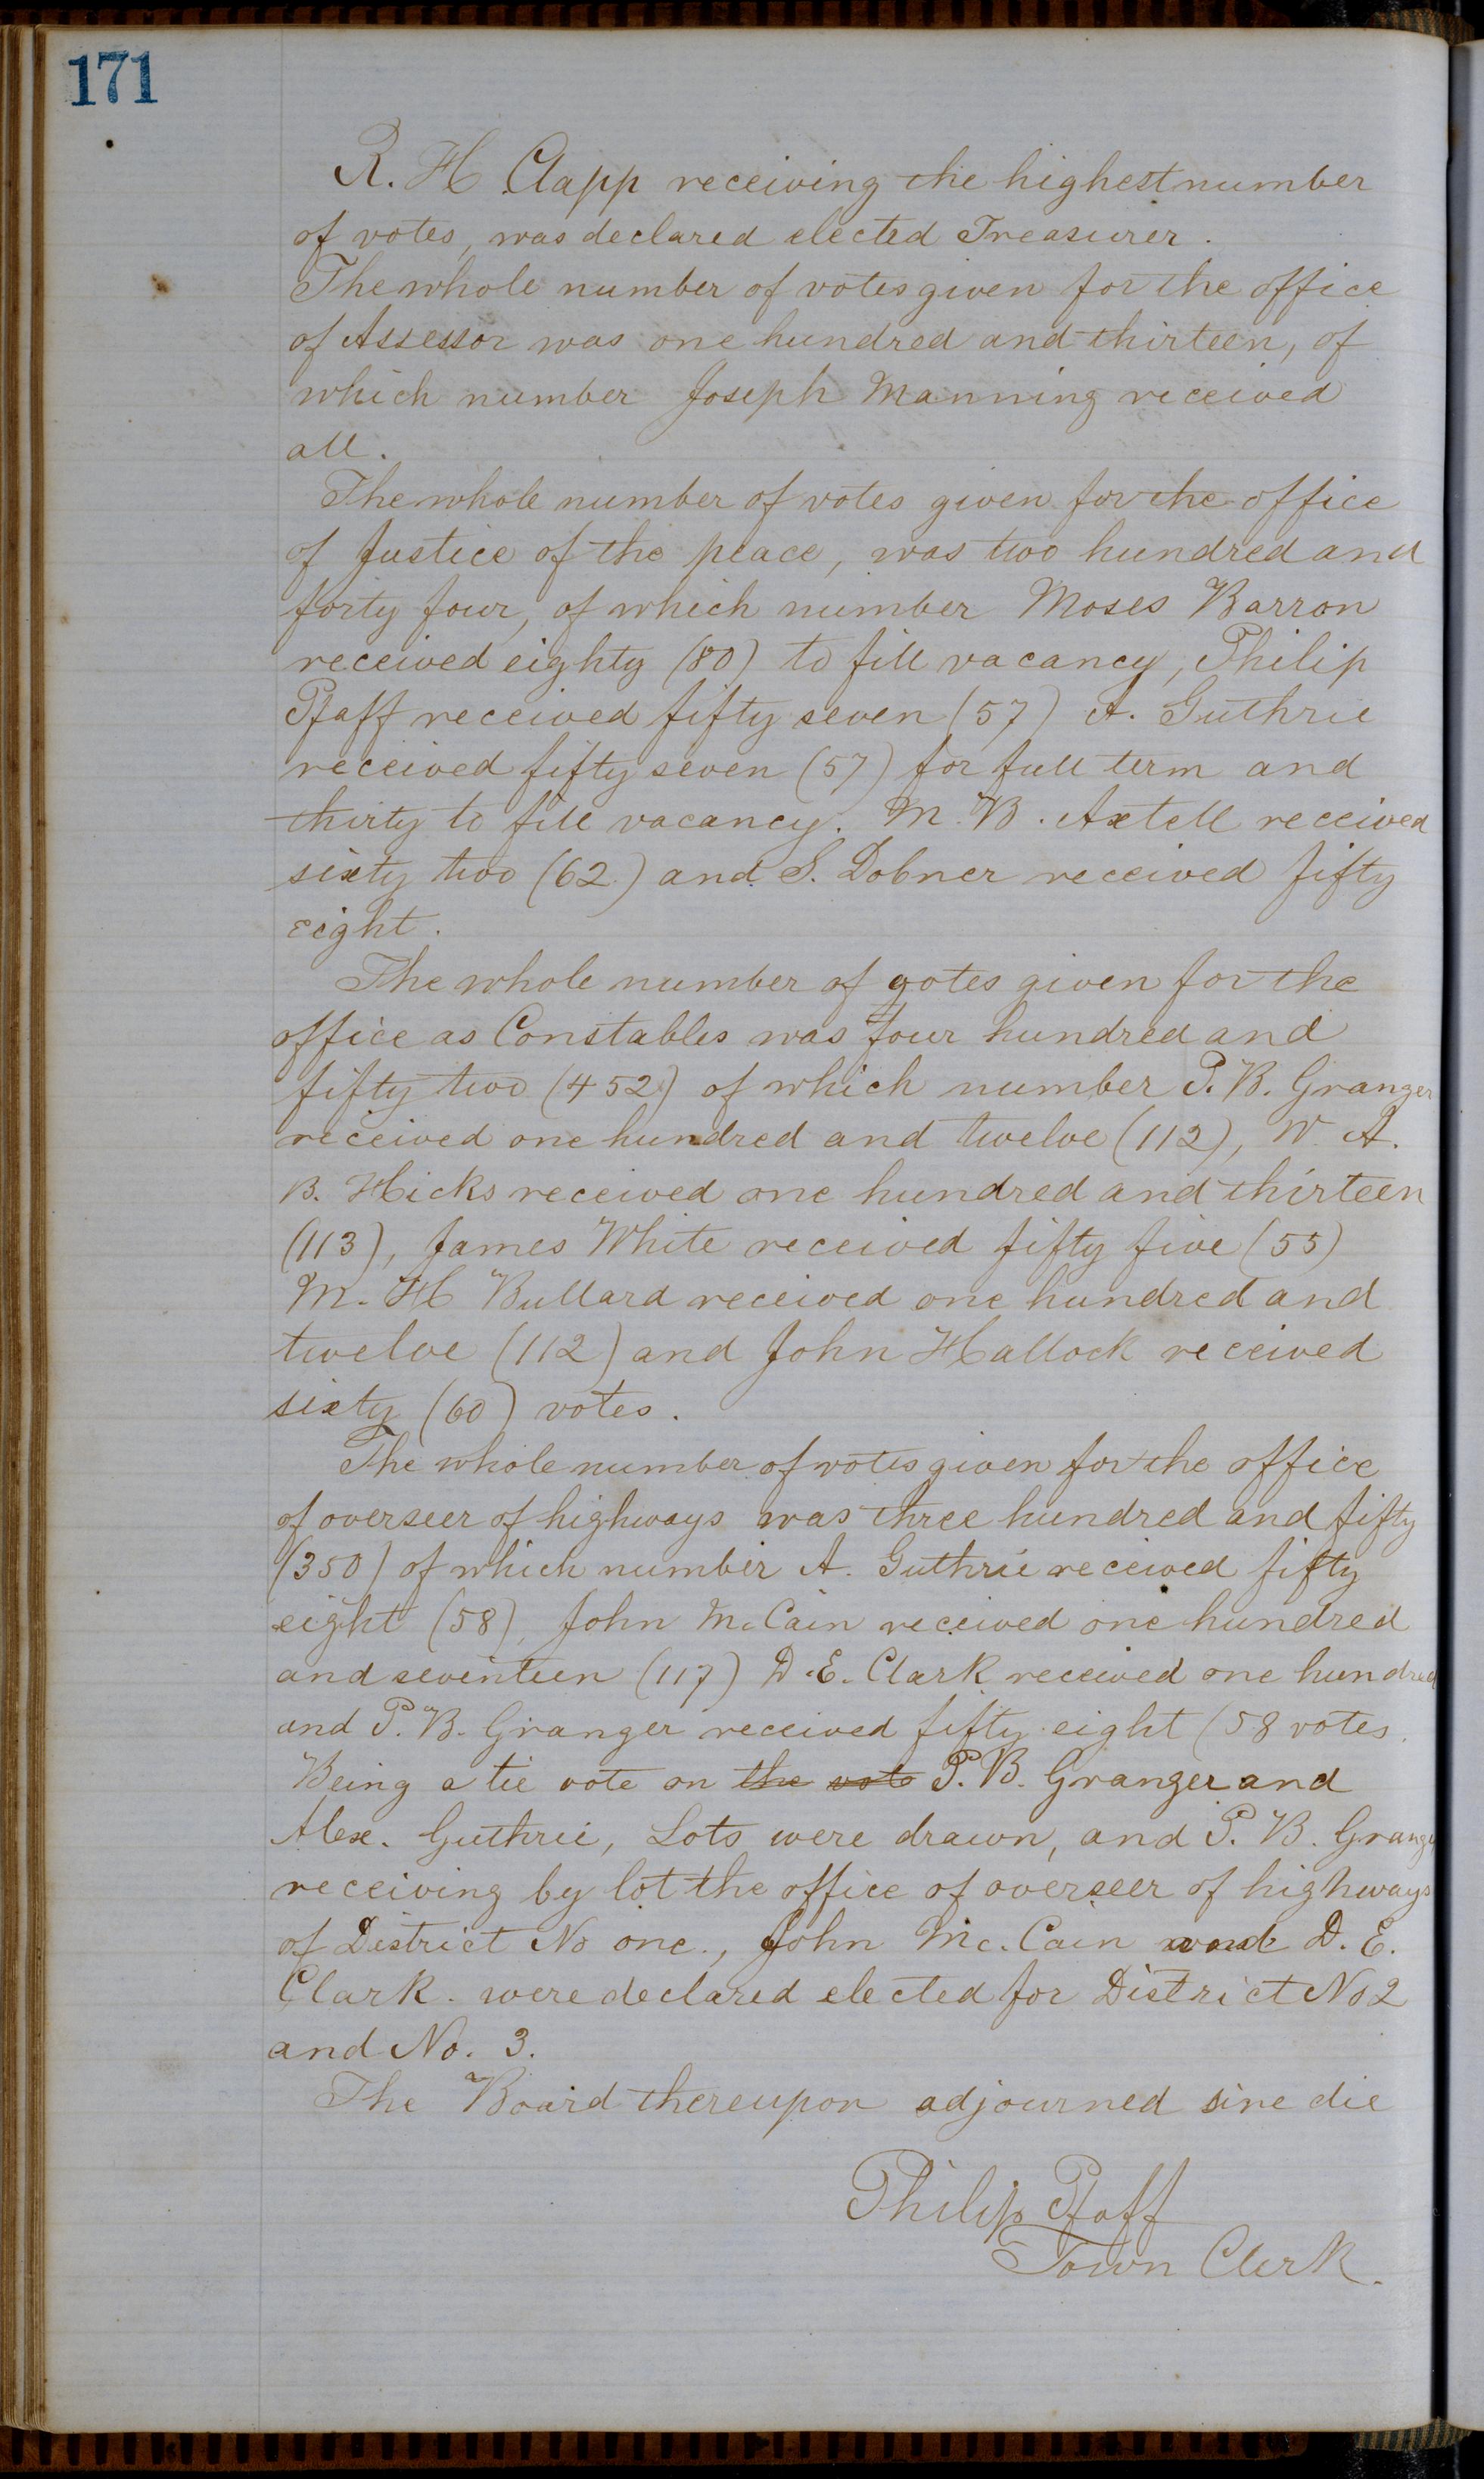 171
R. H Clapp receiving the highest number
of votes, was declared elected Treasurer.
The whole number of votes given for the office
of Assessor was one hundred and thirteen, of
which number Joseph Manning received
all.
The whole number of votes given for the office
of Justice of the peace, was two hundred and
forty four, of which number Moses Barron
received eighty (80) to fill vacancy, Philip
Pfaff received fifty seven (57) A. Guthrie
received fifty seven (57) for full term and
thirty to fill vacancy. M. B. Axtell received
sixty two (62.) and S. Dobner received fifty
eight.
The whole number of votes given for the
office as Constables was four hundred and
fifty two (452) of which number P. B. Granger
received one hundred and twelve (112), W. A.
B. Hicks received one hundred and thirteen
(113), James White received fifty five (55)
M. H Bullard received one hundred and
twelve (112) and John Hallock received
sixty (60) votes.
The whole number of votes given for the office
of overseer of highways was three hundred and fifty
(350) of which number A. Guthrie received fifty
eight (58), John McCain received one hundred
and seventeen (117) D. E. Clark received one hundred
and P. B. Granger received fifty eight (58 votes.
Being a tie vote on the vote P. B. Granger and
Alex. Guthrie, Lots were drawn, and P. B. Granger
receiving by lot the office of overseer of highways
of District No one., John Mc. Cain and D. E.
Clark. were declared elected for District No 2
and No. 3.
The Board thereupon adjourned sine die
Philip Pfaff
Town Clerk.